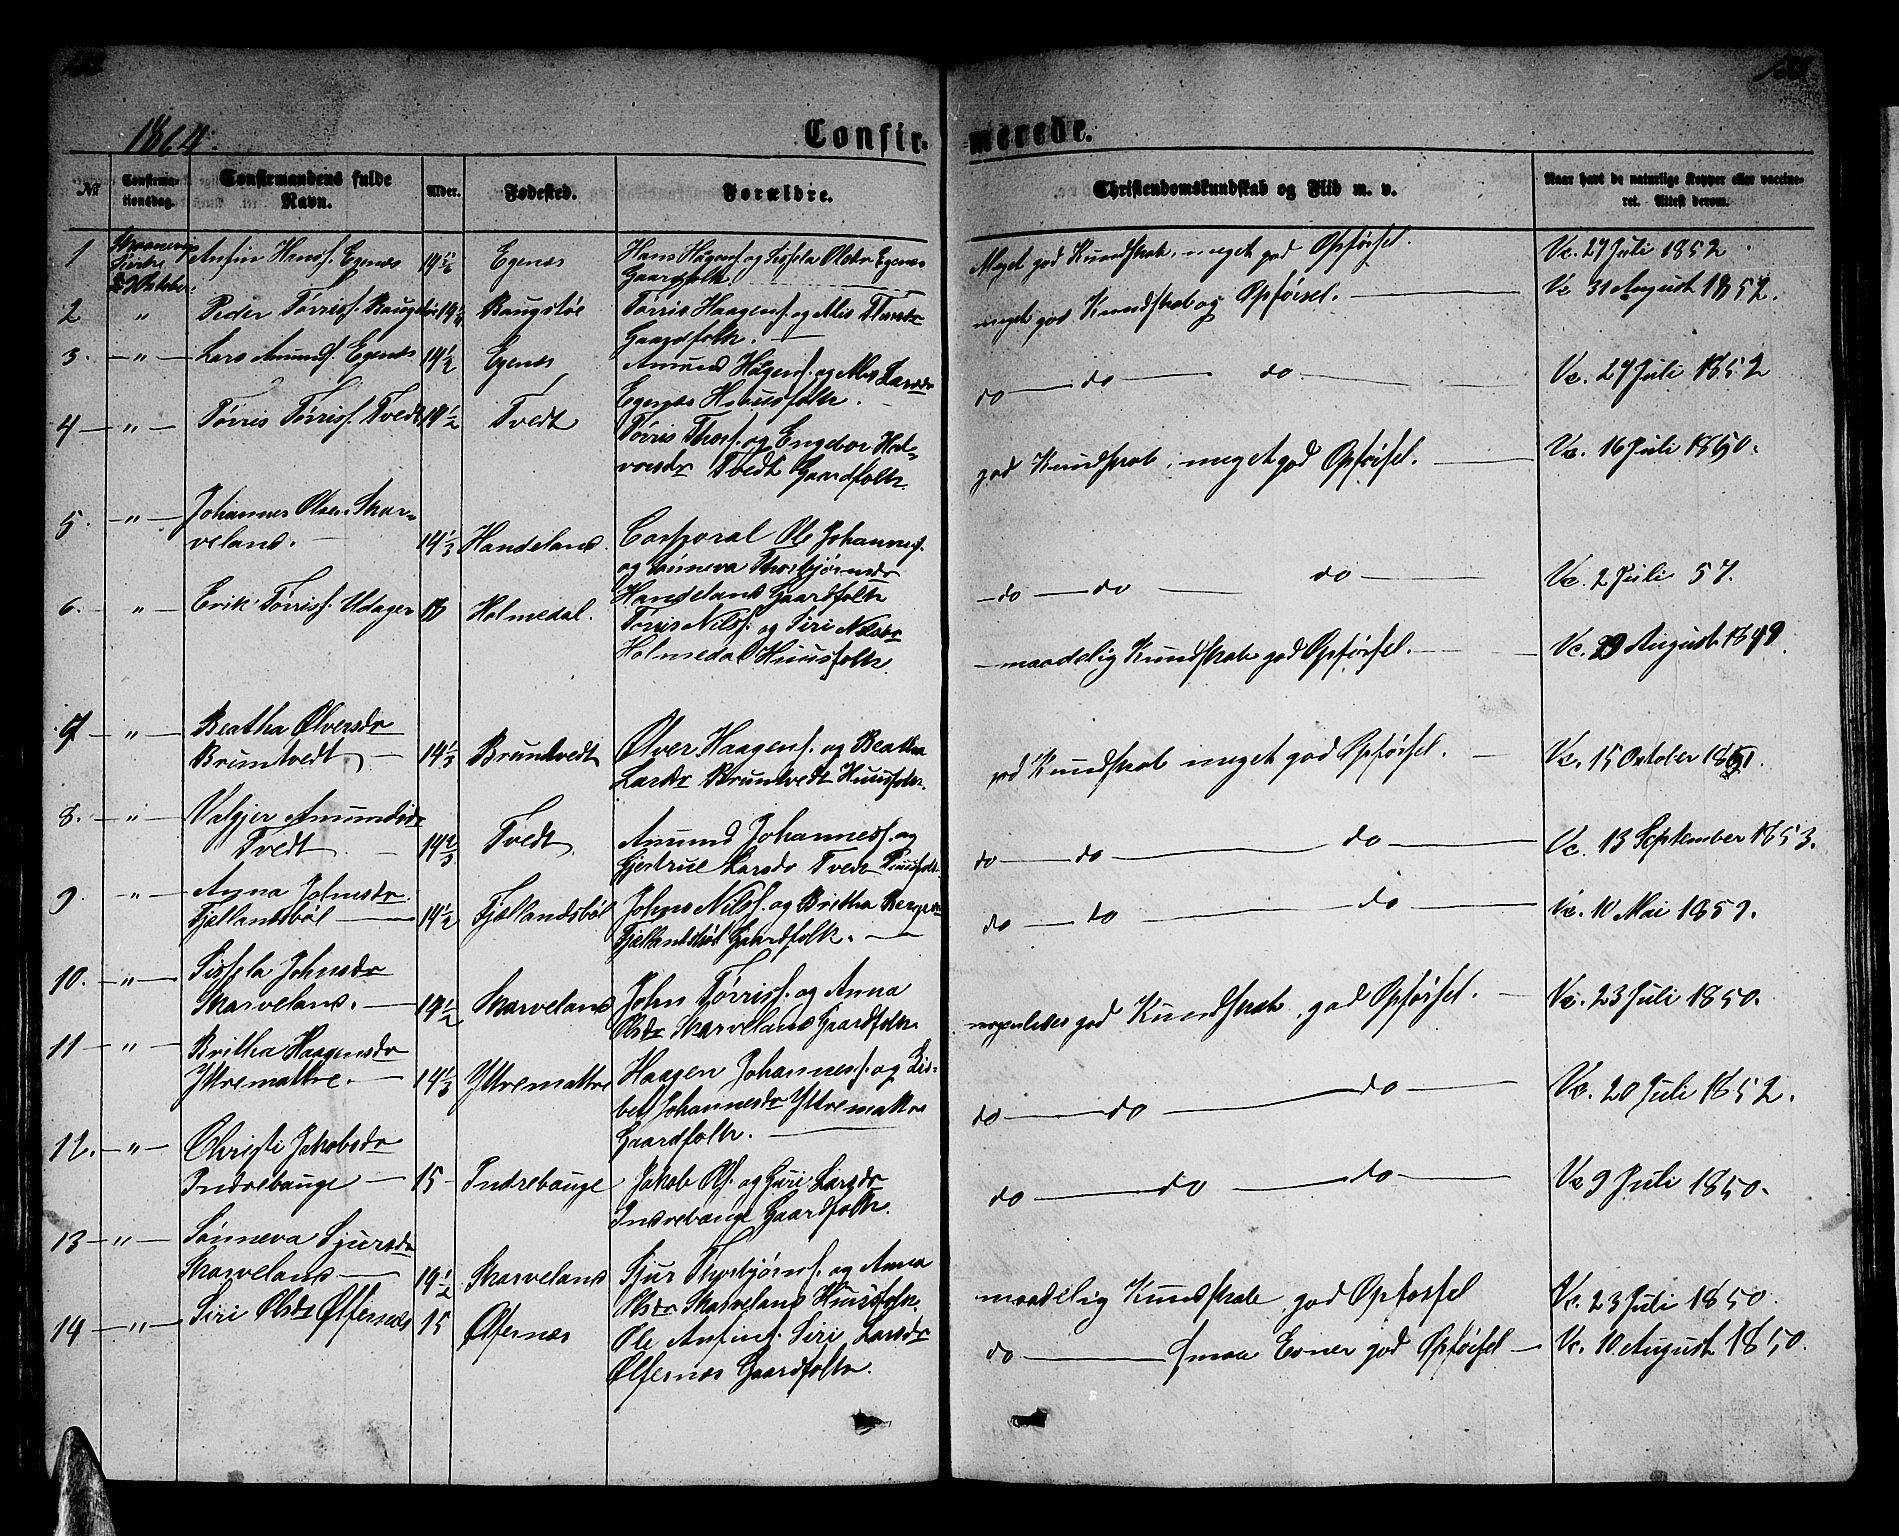 1864.
Confirmerede.
No
Confirmationsdag.
Confirmandens fulde Navn.
Alder.
Fødested.
Forældre.
Christendomskundskab og Flid m. v.
Naar havt de naturlige Kopper eller vaccineret. Attest derom.
1 Skaanevigs Kirke 2 Oktober: Anfin Hansf. Egenæs Egenæs Hans Hågensf. og Sissela Olsdr Egenæs Gaardfolk. Meget god Kundskab, meget god Opførsel. Vc. 27 Juli 1852.
2 " Peder Tørrisf. Baugstøe Baugstøe Tørris Haagensf. og Alis Gaardfolk. meget god Kundskab og Opførsel. Vc 31 August 1852.
3. " Lars Amundf. Egenæs 14½ Egenæs Amund Hågensf. og Alis Larsdr Egenæs Huusfolk. do do do Vc. 27 Juli 1852
4 " Tørris Tørrisf. Tvedt 14½ Tvedt Tørris Thorsf. og Engebor Halvorsdr Tvedt Gaardfolk. god Kundskab, meget god Opførsel. Vc. 16 Juli 1850.
5. " Johannes Olsen Skarveland. 14⅓ Handeland. Corporal Ole Johannesf. og Sünneva Thorbjørnsdr Handeland Gaardfolk do do do Vc. 2 Juli 57.
6. " Erik Tørrisf. Udager Holmedal. Tørris Nilsf. og Siri Nilsdr Holmedal Huusfolk. maadelig Kundskab god Opførsel. Vc. August 1849.
7 " Beatha Ølversdr Bruntvedt 14⅓ Bruntvedt Ølver Haagensf. og Beatha Larsdr Bruntvedt Huusfolk. god Kundskab meget god Opførsel. Vc. 15 Octobr 1851.
8. " Valgjer Amundsdr Tvedt 14⅔ Tvedt Amund Johannesf. og Gjertrue Larsdr Tvedt Huusfolk. do do do Vc. 13 September 1853.
9. " Anna Johnsdr Fjællandsbøl 14½ Fjællandsbøl John Nilsf. og Britha Fjællandsbøl Gaardfolk. do do do Vc. 10 Mai 1859.
10. " Sissela Johnsdr Skarveland. 14½ Skarveland John Tørrisf. og Anna Olsdr Skarveland Gaardfolk. nogenledes god Kundskab, god Opførsel. Vc. 23 Juli 1850.
11 " Britha Haagensdr Yttremattre. 14⅓ Yttremattre Haagen Johannesf. og Lisbet Johannesdr Yttremattre Gaardfolk. do do do Vc. 20 Juli 1852.
12. " Christi Jakobsdr Indrebauge 15 Indrebauge Jakob Olsf. og Guri Larsdr Indrebauge Gaardfolk. do do do Vc 9 Juli 1850.
13 " Sünneva Sjursdr Skarveland 14½ Skarveland Sjur Thorbjørnsf. og Anna Olsdr Skarveland Huusfolk. maadelig Kundskab, god Opførsel Vc. 23 Juli 1850.
14 " Siri Olsdr Ølfernæs 15 Ølfernæs Ole Anfinsf. Siri Larsdr Ølfernæs Gaardfolk. do smaa Evner god Opførsel Vc. 10 August 1850.